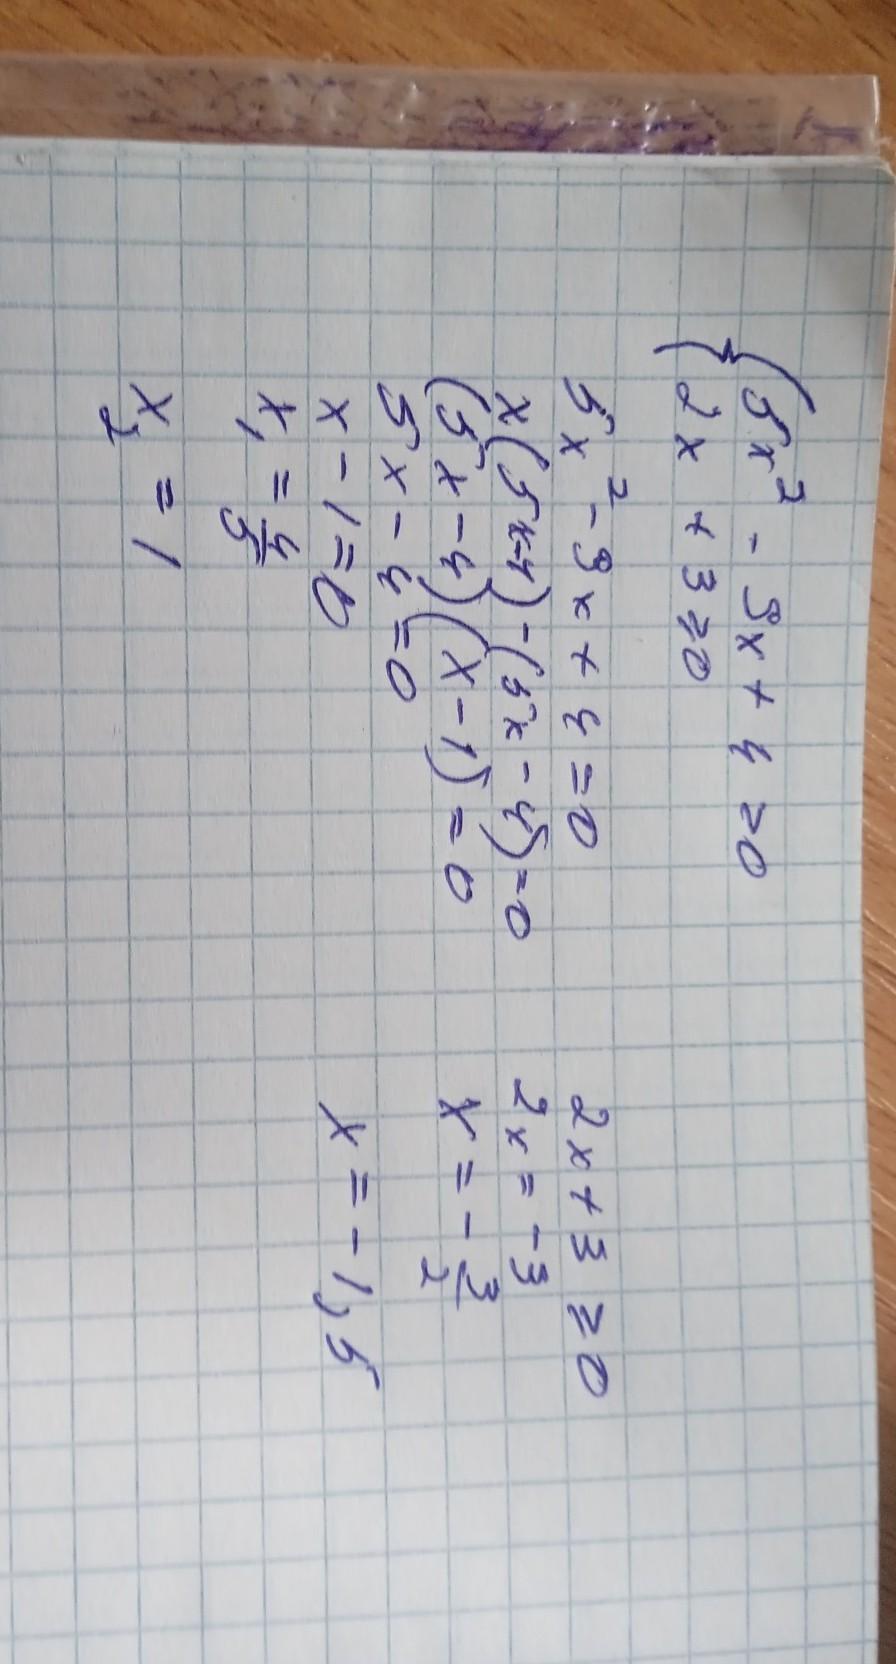 { 5x² - 9x + 4 ≥ 0
2x + 3 ≥ 0
5x² - 9x + 4 = 0
x(5x-4) - (5x - 4) = 0
(5x - 4)(x - 1) = 0
5x - 4 = 0
x - 1 = 0
x₁ = 4/5
x₂ = 1
2x + 3 ≥ 0
2x = -3
x = - 3/2
x = -1,5